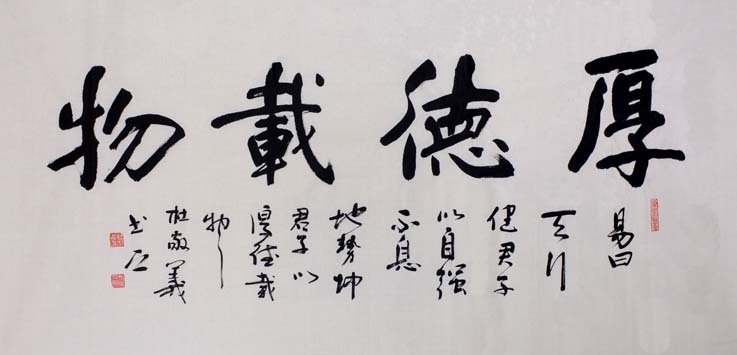 厚德載物
易曰
天行
健君子
以自强
不息
地勢坤
君子以
厚德載
物
杜敬義
书